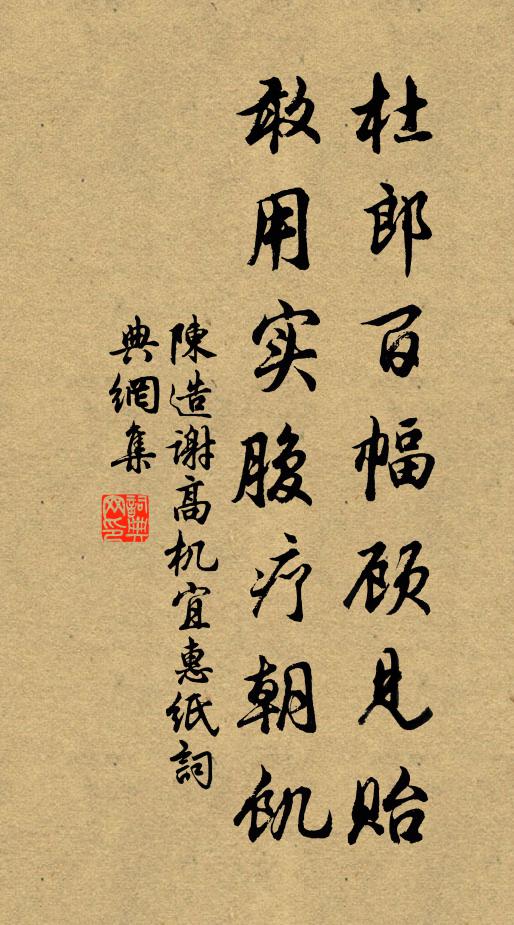 杜郎百幅顾见贻
敢用实腹疗朝飢
陳造謝高机宜惠紙詞
典網集
詞典
网印